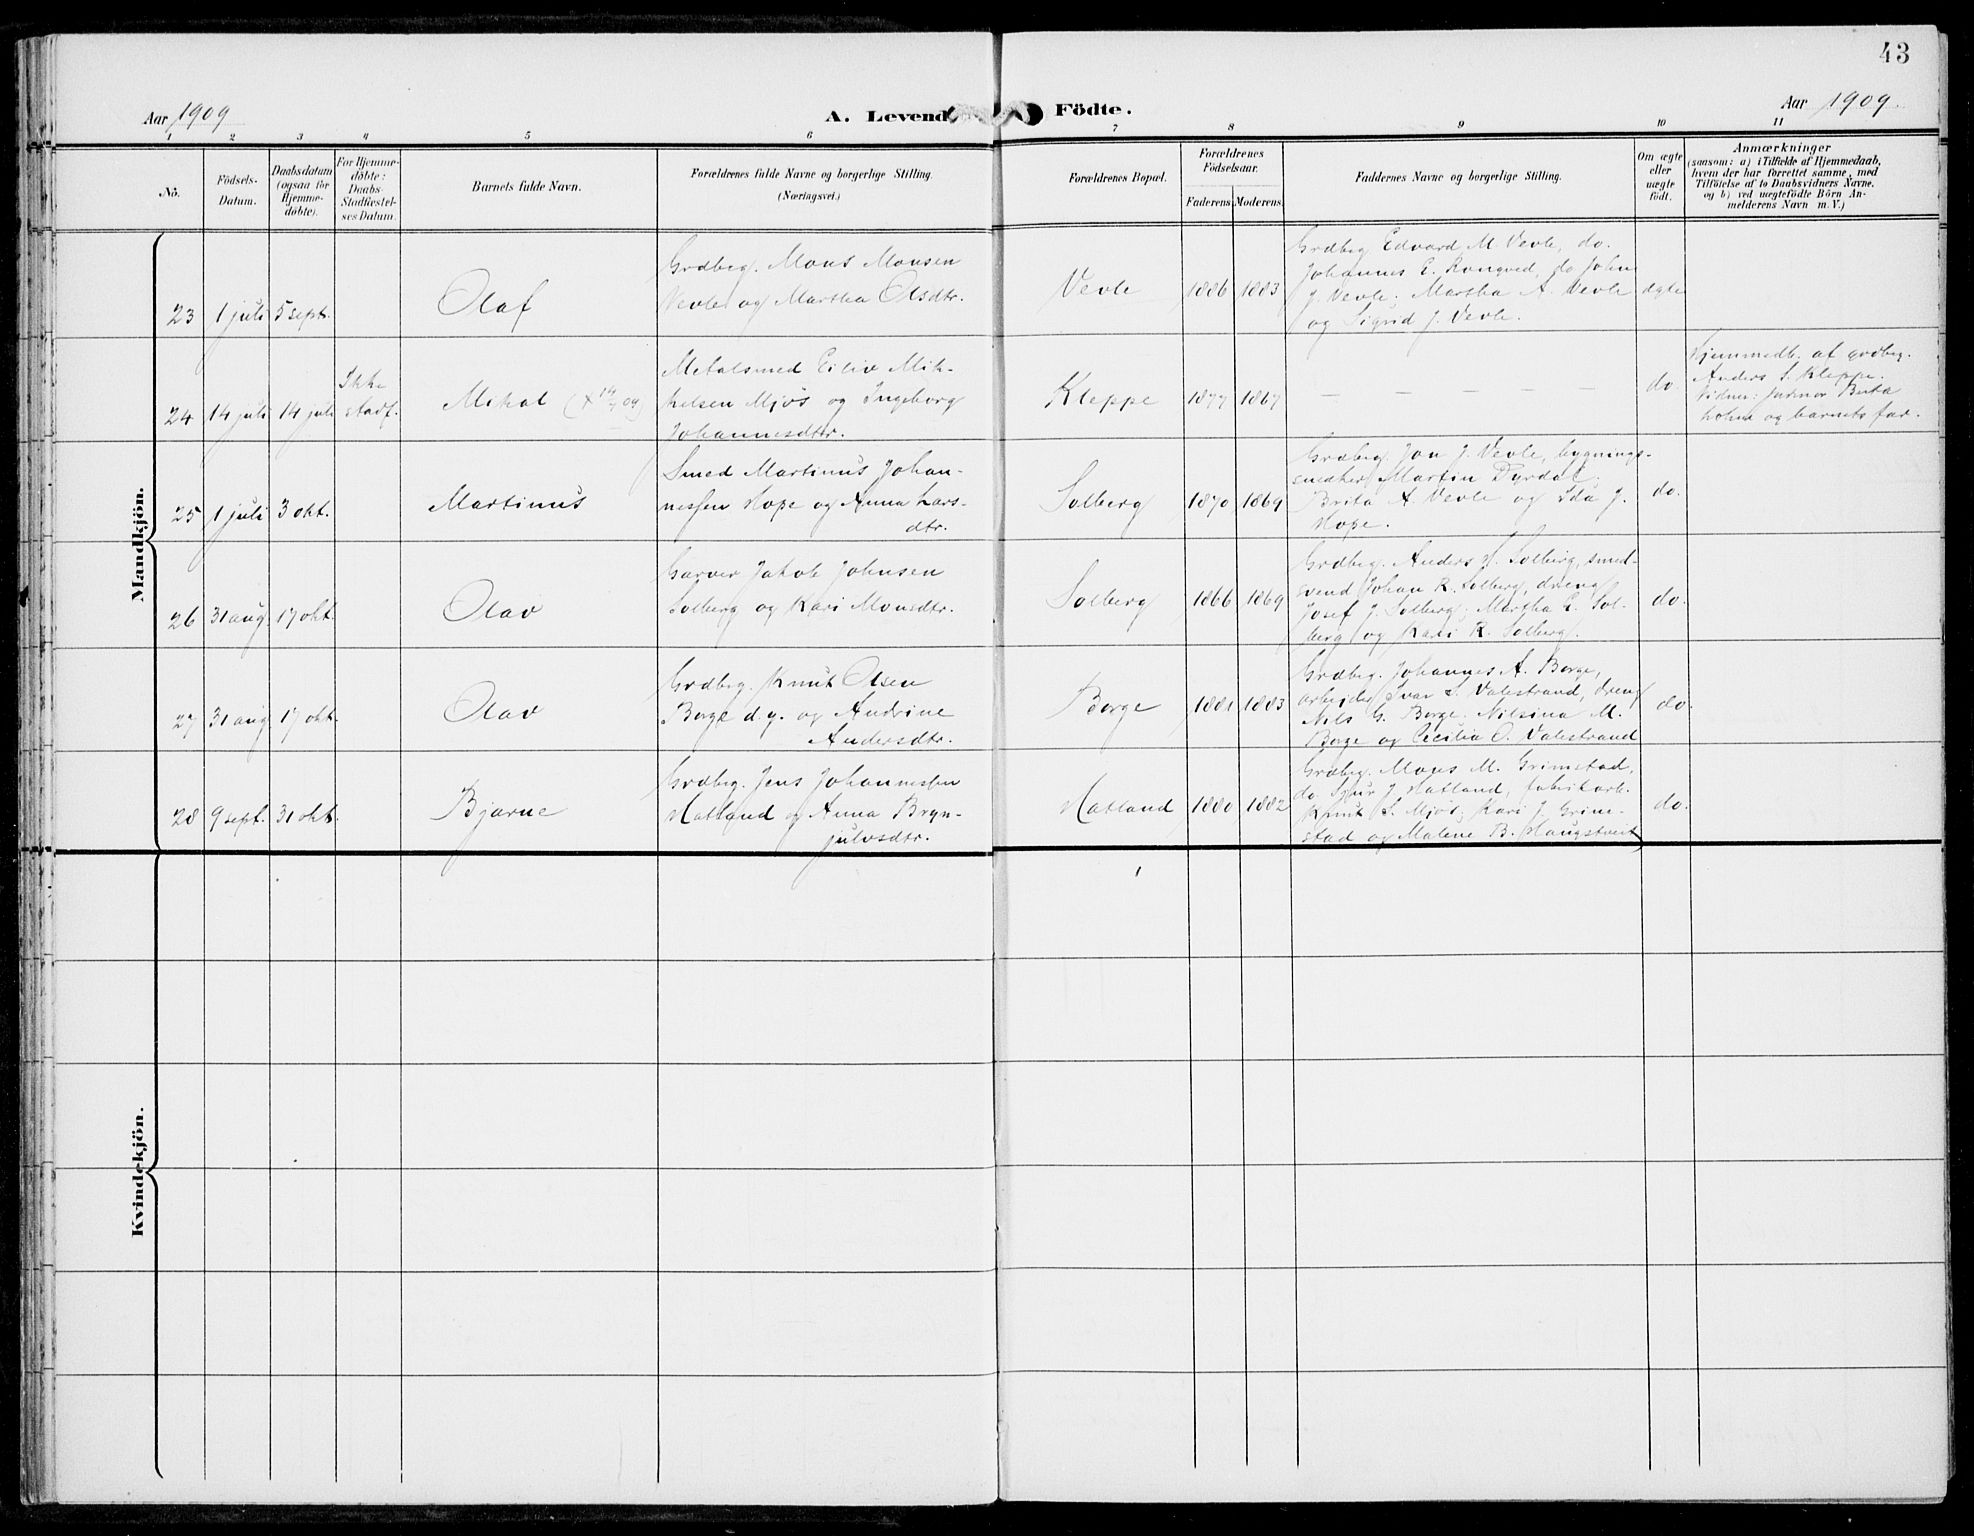 43
Aar 1909
A. Levende Födte.
Aar 1909.
1 2 3 4 5 6 7 8 9 10 11
No.
Födsels-
Datum.
Daabsdatum
(ogsaa for
Hjemme-
døbte).
For Hjemme-
døbte:
Daabs-
Stadfæstel-
ses Datum.
Barnets fulde Navn.
Forældrenes fulde Navne og borgerlige Stilling.
(Næringsvei.)
Forældrenes Bopæl.
Forældrenes
Födselsaar.
Faderens Moderens
Faddernes Navne og borgerlige Stilling.
Om ægte
eller
uægte
födt.
Anmærkninger
(saasom: a) i Tilfælde af Hjemmedaab,
hvem der har forrettet samme, med
Tilföielse af to Daabsvidners Navne.
og b) ved uægtefödte Börn An-
melderens Navn m. V.)
Mandkjön.
23 1 juli 5 sept.
Olaf
Grdbrg. Mons Monsen
Vevle og Martha Olsdtr.
Vevle
1886 1883
Grdbrg Edvard M. Vevle, do.
Johannes E. Rongved, do John
J. Vevle. Martha A. Vevle
og Sigrid J. Vevle.
ægte
24 14 juli 14 juli
Ikke
stadf.
Mikal (+ 14/7 09)
Metalsmed Eiliv Mik-
kelsen Mjøs og Ingeborg
Johannesdtr.
Kleppe
1877 1867
— — — — —
do
Hjemmedb. af grdbrg.
Anders S. Kleppe.
Vidner: jordmor Brita
og barnets far.
25 1 juli 3 okt.
Martinus
Smed Martinus Johan-
nessen Hope og Anna Lars-
dtr.
Solberg
1870 1869
Grdbrg. Jon J. Vevle, bygnings-
snedker Martin Dyrdal;
Brita A. Vevle og Ida J.
Hope.
do.
26 31 aug. 17 okt.
Olav
Garver Jakob Johnsen
Solberg og Kari Monsdtr.
Solberg
1866 1869
Grdbrg. Anders J. Solberg, smed-
svend Johan R. Solberg, dreng
Josef J. Solberg; Martha E. Sol-
berg og Kari R. Solberg.
do.
27 31 aug 17 okt.
Olav
Grdbrg. Knut Olsen
Borge d.y. og Andrine
Andersdtr.
Borge
1881 1883
Grdbrg. Johannes A. Borge,
arbeider Ivar S. Valestrand, dreng
Nils G. Borge. Nilsina M.
Borge og Cecilia O. Valestrand
do.
28 9 sept. 31 okt.
Bjarne
Grdbrg. Jens Johannessen
Hatland og Anna Bryn-
julvsdtr.
Hatland
1880 1882
Grdbrg. Mons M. Grimstad,
do. Sjur J. Hatland, fabrikarb.
Knut S. Mjøs; Kari J. Grim-
stad og Malene B. Haugstveit
do.
Kvindekjön.